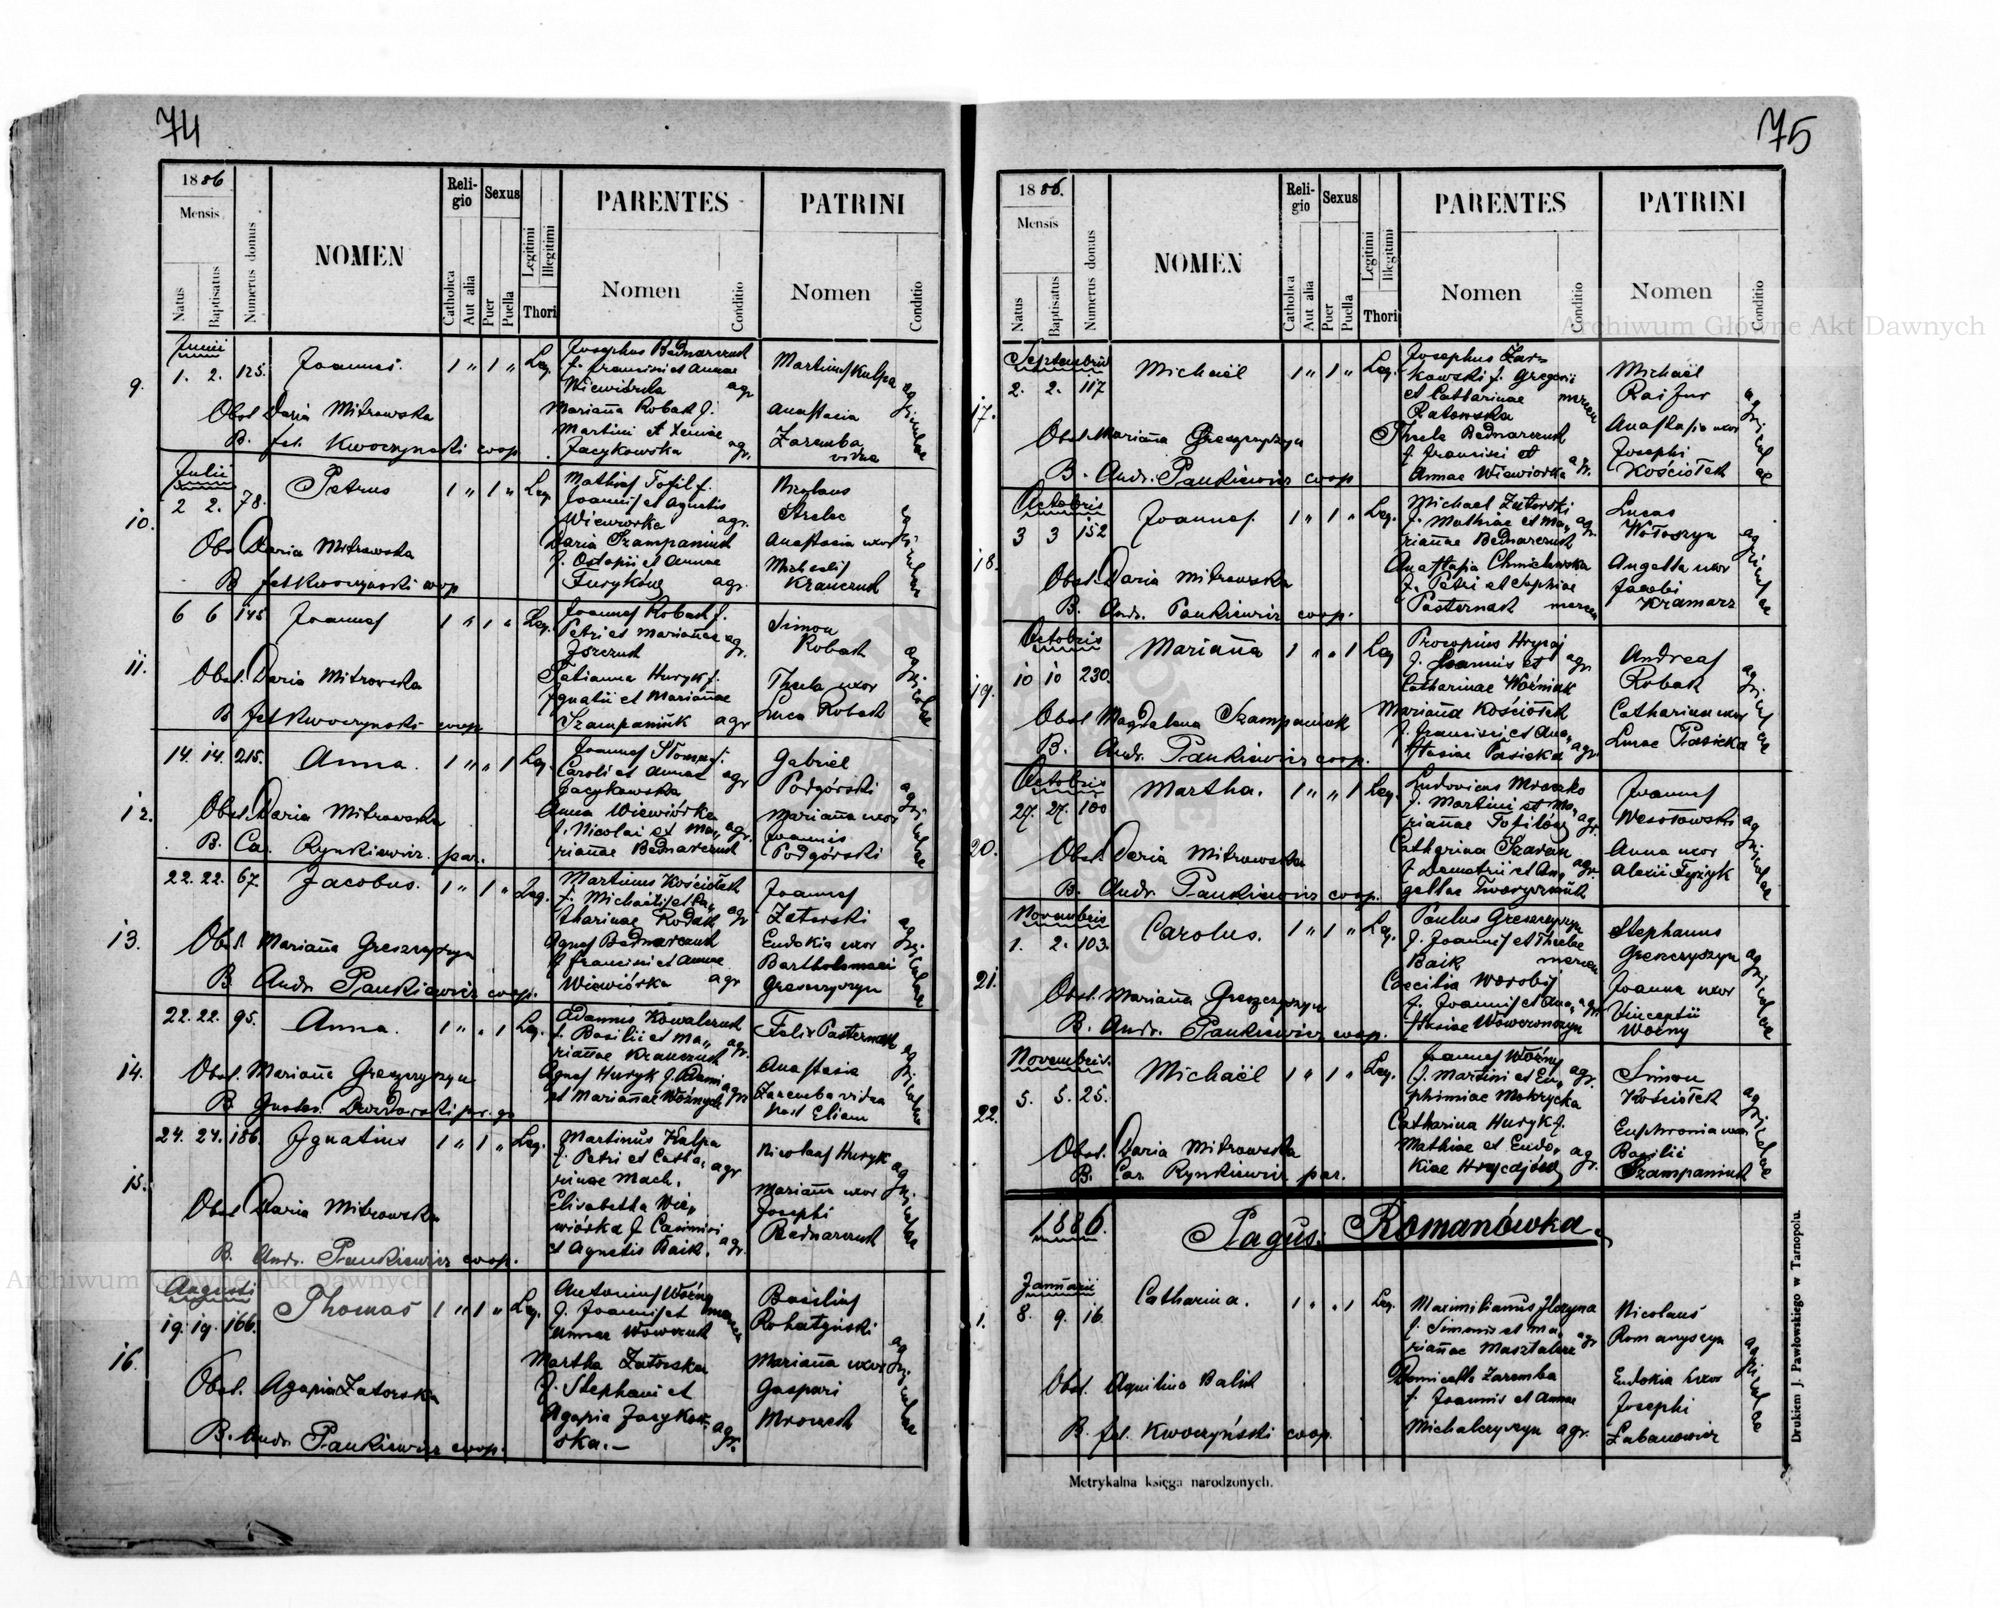 74
1886
Mensis
Natus
Baptisatus
Numerus domus
NOMEN
Religio
Catholica
Aut alia
Sexus
Puer
Puella
Legitimi
Illegitimi
Thori
PARENTES
Nomen
Conditio
PATRINI
Nomen
Conditio
9.
Junii
1. 2. 125. Joannes. 1 " 1 " Leg.
Josephus Bednarczuk
f. Francisci et Annae
Wiewiórka agr.
Marianna Robak f.
Martini et Xeniae
Jacykowska agr.
Martinus Kulpa
Anastasia
Zaremba
vidua
agricolae
Obst. Daria Mitrowska
B. fel. Kwoczynski coop
10.
Julii
2 2. 78. Petrus 1 " 1 " Leg.
Mathias Tofil f.
Joannis et Agnetis
Wiewiorka agr.
Daria Szampaniuk
f. Ostapii et Annae
Furyków agr.
Nicolaus
Strelec
Anastasia uxor
Michaelis
Krawczuk
Obst. Daria Mitrowska
B fel Kwoczynski coop
11.
6 6 145 Joannes 1 " 1 " Leg.
Joannes Robak f.
Petri et Mariannae agr.
Tatianna Huryk f.
Ignatii et Mariannae
Szampaniuk agr
Simon
Robak
Thecla uxor
Lucae Robak
Obst. Daria Mitrowska
B fel Kwoczynski coop.
12.
14. 14. 215. Anna. 1 " " 1 Leg.
Caroli et Annae agr
Jacykowska
Anna Wiewiórka
f. Nicolai et Ma- agr.
riannae Bednarczuk
Gabriel
Podgórski
Marianna uxor
Joannis
Podgórski
agricolae
Obst. Daria Mitrowska
B. Ca. Rynkiewicz par.
13.
22. 22. 67. Jacobus. 1 " 1 " Leg.
Martinus Kościółek
f. Michaelis et Ca-
tharinae Robak agr
Agnes Bednarczuk
f Francisci et Annae
Wiewiórka agr
Joannes
Zatorski
Eudokia uxor
Bartholomaei
Greszczyszyn
agricolae
Obst. Marianna Greszczyszyn
B. Andr. Pankiewicz coop.
14.
22. 22. 95. Anna. 1 " " 1 Leg.
Kowalczuk
f. Basilii et Ma- agr.
riannae Krawczuk
Agnes Huryk f. Adami agr
et Mariannae Woźnych
Felix Pasternak
Anastasia
Zaremba vidua
post Eliam
agricolae
Obst. Marianna Greszczyszyn
15.
24. 24. 186. Ignatius 1 " 1 " Leg.
Martinus Kulpa
f. Petri et Catha- agr
rinae Mach.
Elisabetha Wie-
wiórka f. Casimiri
et Agnetis Baik. agr.
Nicolaus Huryk
Marianna uxor
Josephi
Bednarczuk
agricolae
Obst. Daria Mitrowska
B. Andr. Pankiewicz coop.
16.
Augusti
19. 19. 166. Thomas 1 " 1 " Leg.
Antonius Woźny
f. Joannis et
Annae Wowczuk
Martha Zatorska
f. Stephani et
Agapia Jacykow-
ska.- agr.
Basilius
Rohatyński
Marianna uxor
Gaspari
Mroczek
agricolae
Obst. Agapia Zatorska
B. Andr. Pankiewicz coop.
75
1886.
Mensis
Natus
Baptisatus
Numerus domus
NOMEN
Religio
Catholica
Aut alia
Sexus
Puer
Puella
Legitimi
Illegitimi
Thori
PARENTES
Nomen
Conditio
PATRINI
Nomen
Conditio
17.
Septembris
2. 2. 117 Michaël 1 " 1 " Leg.
Josephus Żar-
kowski f. Gregorii
et Catharinae mercen
Ratowska
Thecla Bednarczuk
f. Francisci et
Annae Wiewiorka agr.
Michaël
Anastasia uxor
Josephi
Kościółek
agricolae
Obst. Marianna Greszczyszyn
B. Andr. Pankiewicz coop
18.
Octobris
3 3 152 Joannes. 1 " 1 " Leg.
Michael Zatorski
f. Mathiae et Ma- agr.
riannae Bednarczuk
Anastasia Chmielewska
f. Petri et Sophiae
Pasternak mercen
Lucas
Wołoszyn
Angella uxor
Jacobi
Kramarz
agricolae
Obst. Daria Mitrowska
B. Andr. Pankiewicz coop.
19.
Octobris
10 10 230. Marianna 1 " " 1 Leg
Procopius Hrycaj
f. Joannis et agr
Catharinae Woźniak
Marianna Kościółek
f. Francisci et Ana-
stasiae Pasieka agr.
Andreas
Robak
Catharina uxor
Lucae Pasieka
agricolae
Obst Magdalena Szampaniuk
B. Andr. Pankiewicz coop.
20.
Octobris
27. 27. 100 Martha. 1 " " 1 Leg.
Ludovicus Mroczko
f. Martini et Ma-
riannae Tofilów agr.
Catharina Szaran
f. Demetrii et An- agr.
gellae
Joannes
Wesołowski
Anna uxor
Alexii Fyżyk
agricolae
Obst. Daria Mitrowska
B. Andr. Pankiewicz coop.
21.
Novembris
1. 2. 103. Carolus. 1 " 1 " Leg.
Paulus Greszczyszyn
f. Joannis et Theclae
Baik mercen
Caecilia Worobij
f. Joannis et Ana- agr
stasiae
Stephanus
Greszczyszyn
Joanna uxor
Vincentii
Woźny
agricolae
Obst. Marianna Greszczyszyn
B. Andr. Pankiewicz coop.
22.
Novembris.
5. 5. 25. Michaël 1 " 1 " Leg.
Joannes Woźny
f. Martini et Eu- agr.
phimiae Mokrycka
Catharina Huryk f.
Mathiae et Eudo- agr.
kiae Hrycajów
Simon
Kościółek
Euphronia uxor
Basilii
Szampaniuk
agricolae
Obst. Daria Mitrowska
B. Car. Rynkiewicz par.
1886. Pagus: Romanówka.
1.
Januarii
8. 9. 16. Catharina. 1 " " 1 Leg.
Maximilianus
f. Simonis et Ma-
riannae Masztalerz agr
Domicella Zaremba
f. Joannis et Annae
Michalczyszyn agr.
Nicolaus
Romanyszyn
Eudokia uxor
Josephi
Łabanowicz
agricolae
Obst. Aquilina Balik
B. fel. Kwoczyński coop.
Metrykalna księga narodzonych.
Drukiem J. Pawłowskiego w Tarnopolu.
Archiwum Główne Akt Dawnych
Archiwum Główne Akt Dawnych